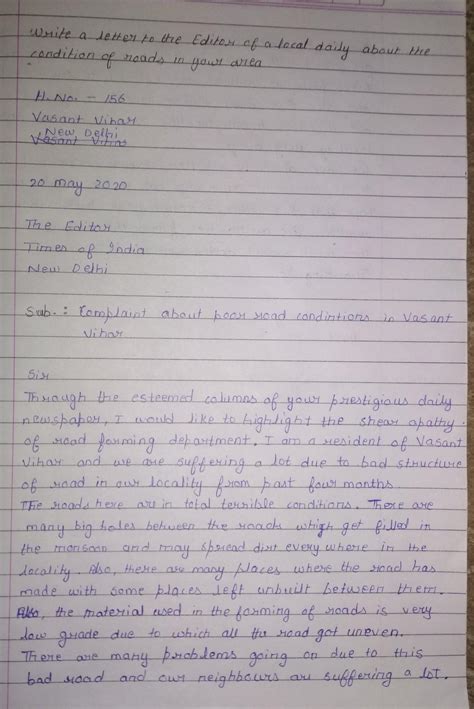 Write a letter to the Editor of a local daily about the
condition of roads in your area
H. No. - 156
Vasant Vihar
New Delhi
Vasant Vihar
20 May 2020
The Editor
Times of India
New Delhi
Sub. : Complaint about poor road condintions in Vasant
Vihar
Sir
Through the esteemed columns of your prestigious daily
newspaper, I would like to highlight the shear apathy
of road forming department. I am a resident of Vasant
Vihar and we are suffering a lot due to bad structure
of road in our locality from past four months.
The roads here are in total terrible conditions. There are
many big holes between the roads which get filled in
the monsoon and may spread dirt every where in the
locality. Also, there are many places where the road has
made with some places left unbuilt between them.
Also, the material used in the forming of roads is very
low grade due to which all the road got uneven.
There are many problems going on due to this
bad road and our neighbours are suffering a lot.